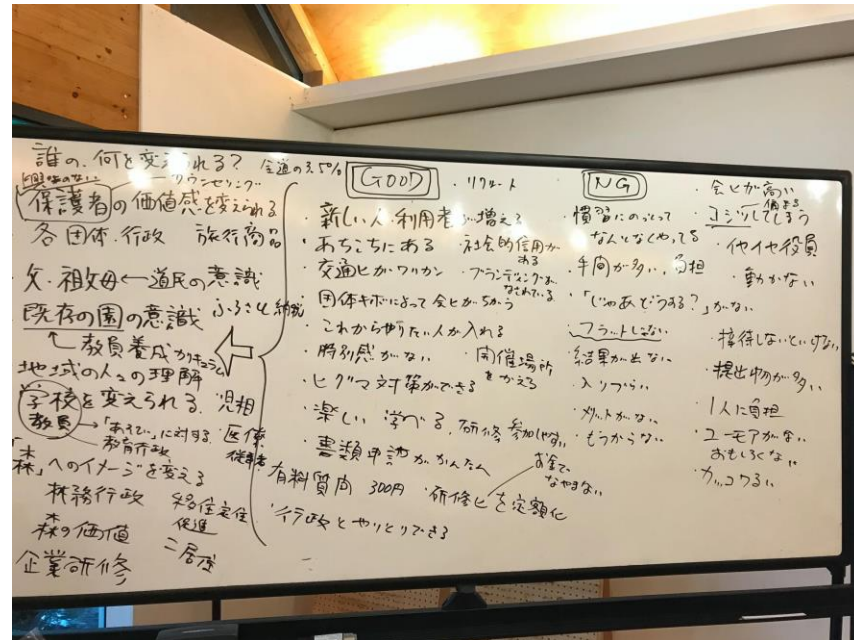 誰の、何を変えられる?
全道の3.5%
興味のない
カウンセリング
保護者の価値感を変えられる
各団体・行政 旅行商品
・父・祖父母←道民の意識
既存の園の意識 ふるさと納税
教員養成カリキュラム
地域の人々の理解
学校を変えられる 児相
教員 「あそび」に対する 医療
教育行政 従事者
「森」へのイメージを変える
林務行政 移住定住
促進
森の価値 二居住
企業研修
GOOD
・リクルート
・新しい人・利用者が増える
・あちこちにある
・社会的信用が
ある
・交通ヒがワリカン
・ブランディングが
なされている
・団体キボによって会ヒがちがう
・これからやりたい人が入れる
・特別感がない
・開催場所
をかえる
・ヒグマ対策ができる
・楽しい 学べる
研修 参加しやすい
・書類申請がかんたん
有料質問 300円
・研修ヒを定額化
お金で
なやまない
・行政とやりとりできる
NG
・慣習にのっとって
なんとなくやってる
・手間が多い、負担
・「じゃあどうする?」がない
・フラットじゃない
・結果が出ない
・入りづらい
・メリットがない
・もうからない
・会ヒが高い
・コジンしてしまう
・イヤイヤ役員
・動かない
・接待しないといけない
・提出物が多い
・1人に負担
・ユーモアがない
おもしろくない
・カッコワるい